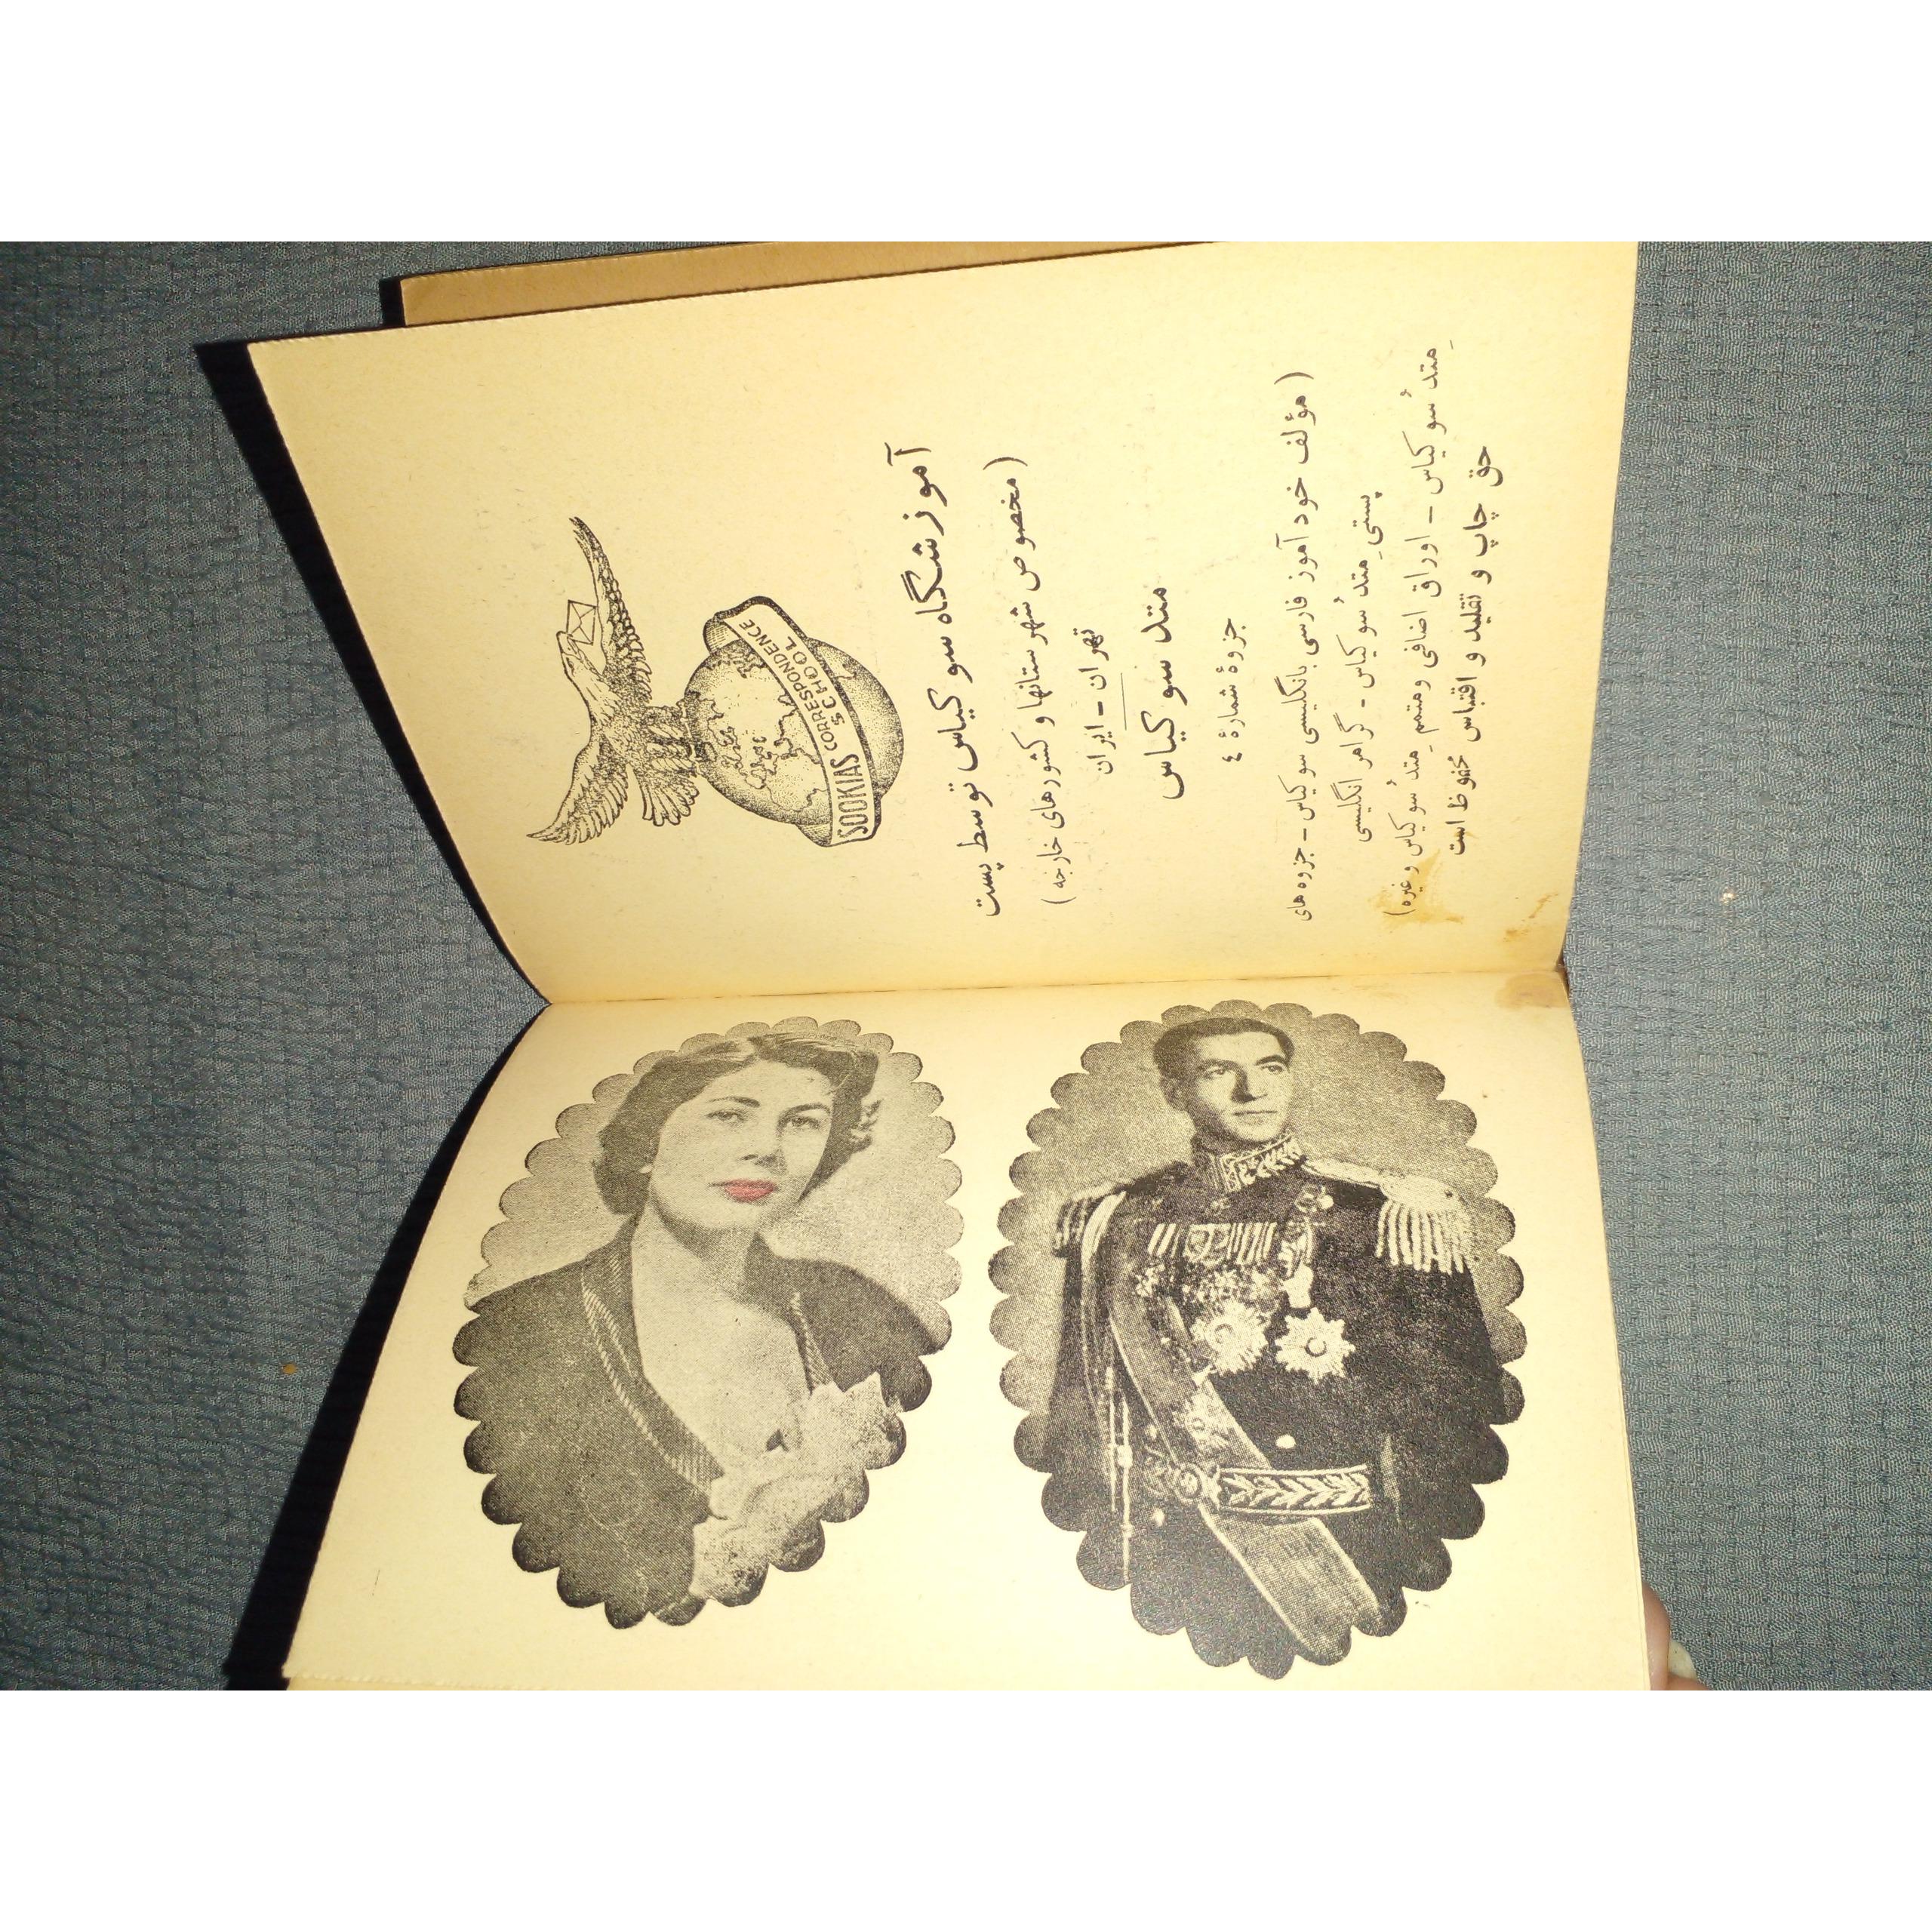 SOOKIAS CORRESPONDENCE
SCHOOL
آموزشگاه سوکیاس توسط پست
(مخصوص شهرستانها و کشورهای خارجه)
تهران - ایران
متد سوکیاس
جزوهٔ شمارهٔ ٤
(مؤلف خودآموز فارسی بانگلیسی سوکیاس - جزوه‌های
پستیِ مِتدسُوکیاس - گرامر انگلیسی
مِتدسُوکیاس - اوراق اضافی ومتممِ متدسُوکیاس وغیره)
حق چاپ و تقلید و اقتباس محفوظ است